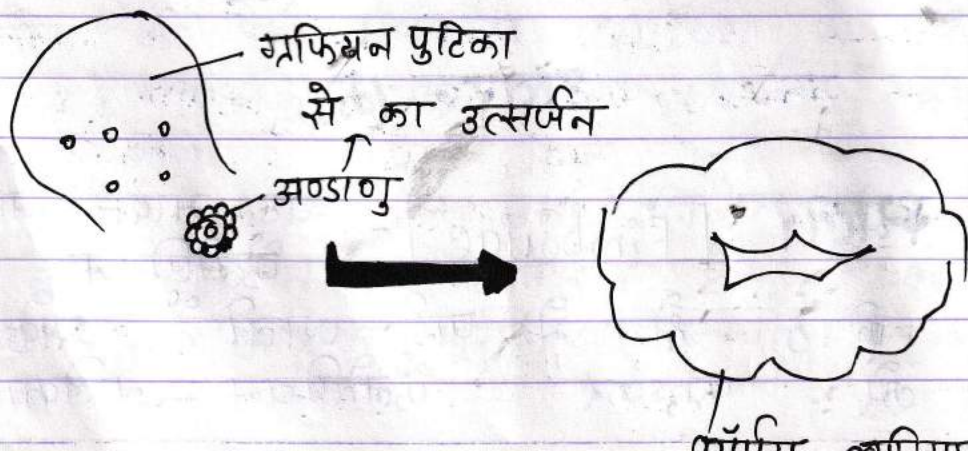 ग्रफियन पुटिका
से का उत्सर्जन
अण्डाणु
कॉर्पस